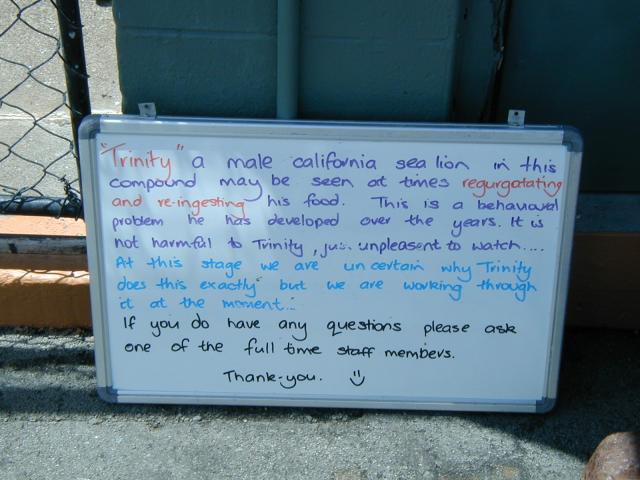 "Trinity" a male california sea lion in this
compound may be seen at times regurgatating
and re-ingesting his food. This is a behavioural
problem he has developed over the years. It is
not harmful to Trinity, just unpleasent to watch....
At this stage we are uncertain why Trinity
does this exactly but we are working through
it at the moment...
If you do have any questions please ask
one of the full time staff members.
Thank-you. :)